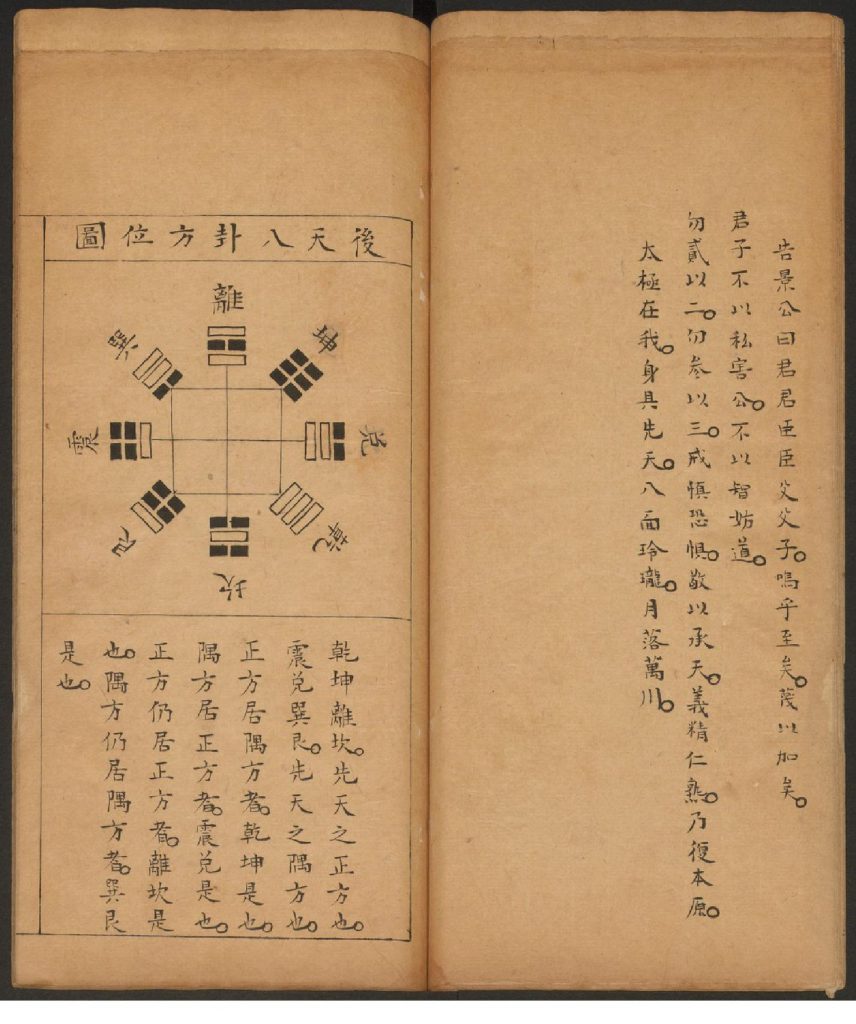 告景公曰君君臣臣父父子。嗚乎至矣。蔑以加矣。
君子不以私害公。不以智妨道。
勿貳以二。勿参以三。戒慎恐惧。敬以承天。義精仁熟。乃復本原。
太極在我。身具先天。八面玲瓏。月落萬川。
後天八卦方位圖
離
坤
兌
乾
坎
艮
震
巽
乾坤離坎。先天之正方也。
震兌巽艮。先天之隅方也。
正方居隅方者。乾坤是也。
隅方居正方者。震兌是也。
正方仍居正方者。離坎是
也。隅方仍居隅方者。巽艮
是也。